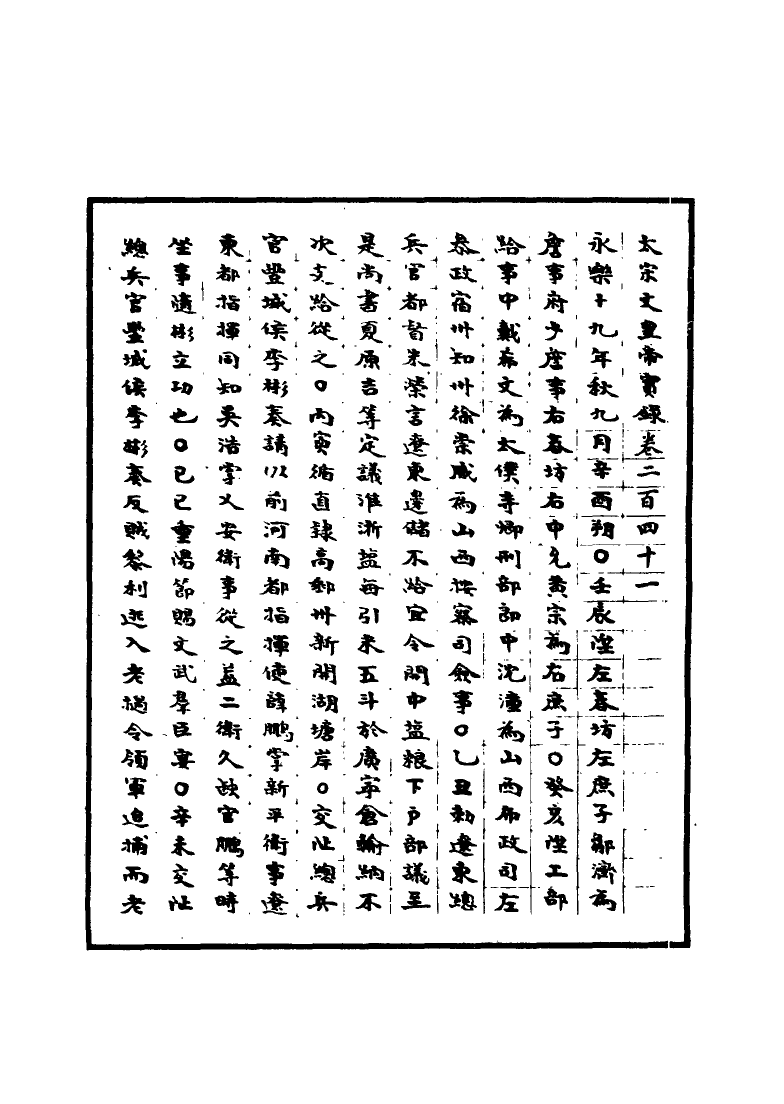 太宗文皇帝實錄卷二百四十一
永樂十九年秋九月辛酉朔○壬戌陞左春坊左庶子鄒濟為
詹事府少詹事右春坊右中允黃宗為右庶子○癸亥陞工部
給事中戴希文為太僕寺卿刑部郎中沈潼為山西布政司左
叅政宿州知州徐榮咸為山西按察司僉事○乙丑勑遼東總
兵官都督朱榮言遼東邊儲不給宜令開中鹽粮下戶部議至
是尚書夏原吉等定議淮浙鹽每引米五斗於廣寧倉輸納不
次支給從之○丙寅循直隸高郵州新開湖塘岸○交阯總兵
官豐城侯李彬奏請以前河南都指揮使薛鵬掌新平衛事遼
東都指揮同知吳浩掌乂安衛事從之盖二衛久缺官鵬等時
坐事隨彬立功也○己巳重陽節賜文武羣臣宴○辛未交阯
總兵官豐城侯李彬奏反賊黎利逃入老撾令領軍追捕而老